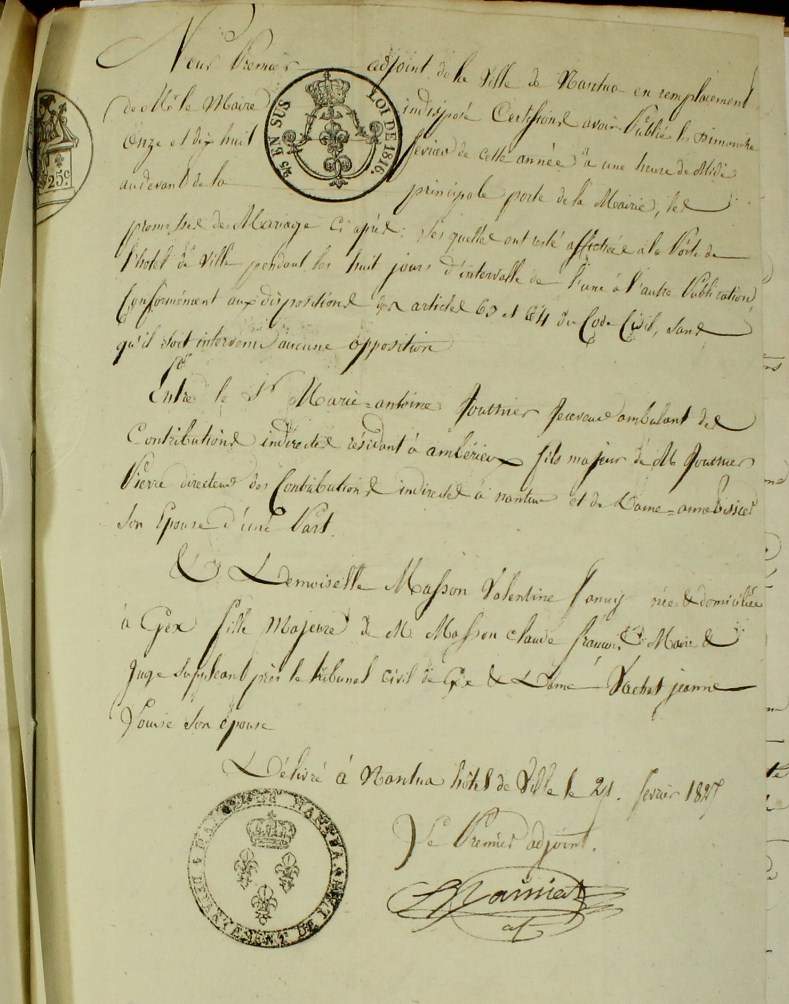 Nous Premier adjoint de la Ville de Nantua en remplacement
de Mr le Maire indisposé Certifions avoir Publié les Dimanche
Onze et dix huit fevrier de cette année à une heure de Midi
audevant de la principale porte de la Mairie, les
promesses de Mariage Ci après; Lesquelles ont resté affichées a la Porte de
l'hôtel de Ville pendant les huit jours d'intervalle de l'une à l'autre Publication,
Conformément aux dispositions des articles 63 et 64 du Code Civil, Sans
qu'il soit intervenu aucune opposition
Entre le Sr Marie-antoine fournier Receveur ambulant des
Contributions indirectes résidant à ambérieux fils majeur de M. fournier
Pierre directeur des Contributions indirectes à nantua et de Dame-anne
Son Epouse d'une Part.
& Demoiselle Masson Valentine fanny née & domiciliée
à Gex fille Majeure de M. Masson Claude françois Maire &
Juge Suppléant près le tribunal Civil de Gex & Dame Vachat jeanne
Louise Son épouse
Délivré à Nantua hôtel de Ville le 21. fevrier 1827
Le Premier adjoint.
45 EN SUS LOI DE 1816.
25c.
MAIRIE DE NANTUA DEPARTEMENT DE L'AIN